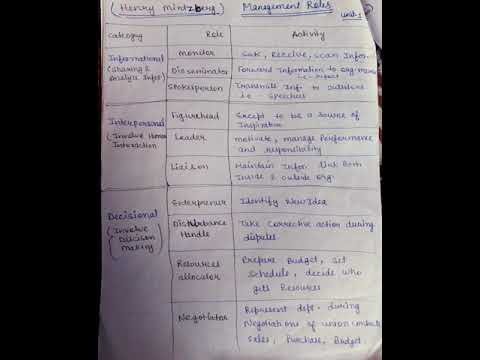 (Henry Mintzberg) Management Roles
unit-1
Category Role Activity
Informational monitor Seek, Receive, Scan Infor.
(Sharing & Disseminator Forward Information to org.
Analyze Infor) i.e.
Spokesperson Transmits Inf. to outsiders
i.e - Speeches
Interpersonal Figurehead Except to be a Source of
(Involve Human Inspiration
Interaction) Leader motivate, manage Performance
and responsibility
Liaison Maintain Infor. link Both
Inside & outside org.
Decisional Enterpreneur Identify New Idea
(Involve Distrbance Take Corrective action during
Decision Handle disputes.
Making) Resources Prepare Budget, set
allocator Schedule, decide who
gets Resources
Negotiator Represent dept. during
Negotiations of union
sales, Purchase, Budget.